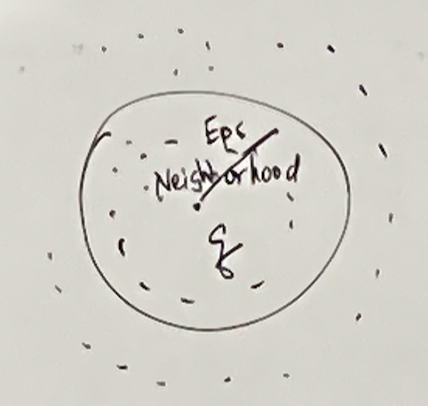 Eps
Neighborhood